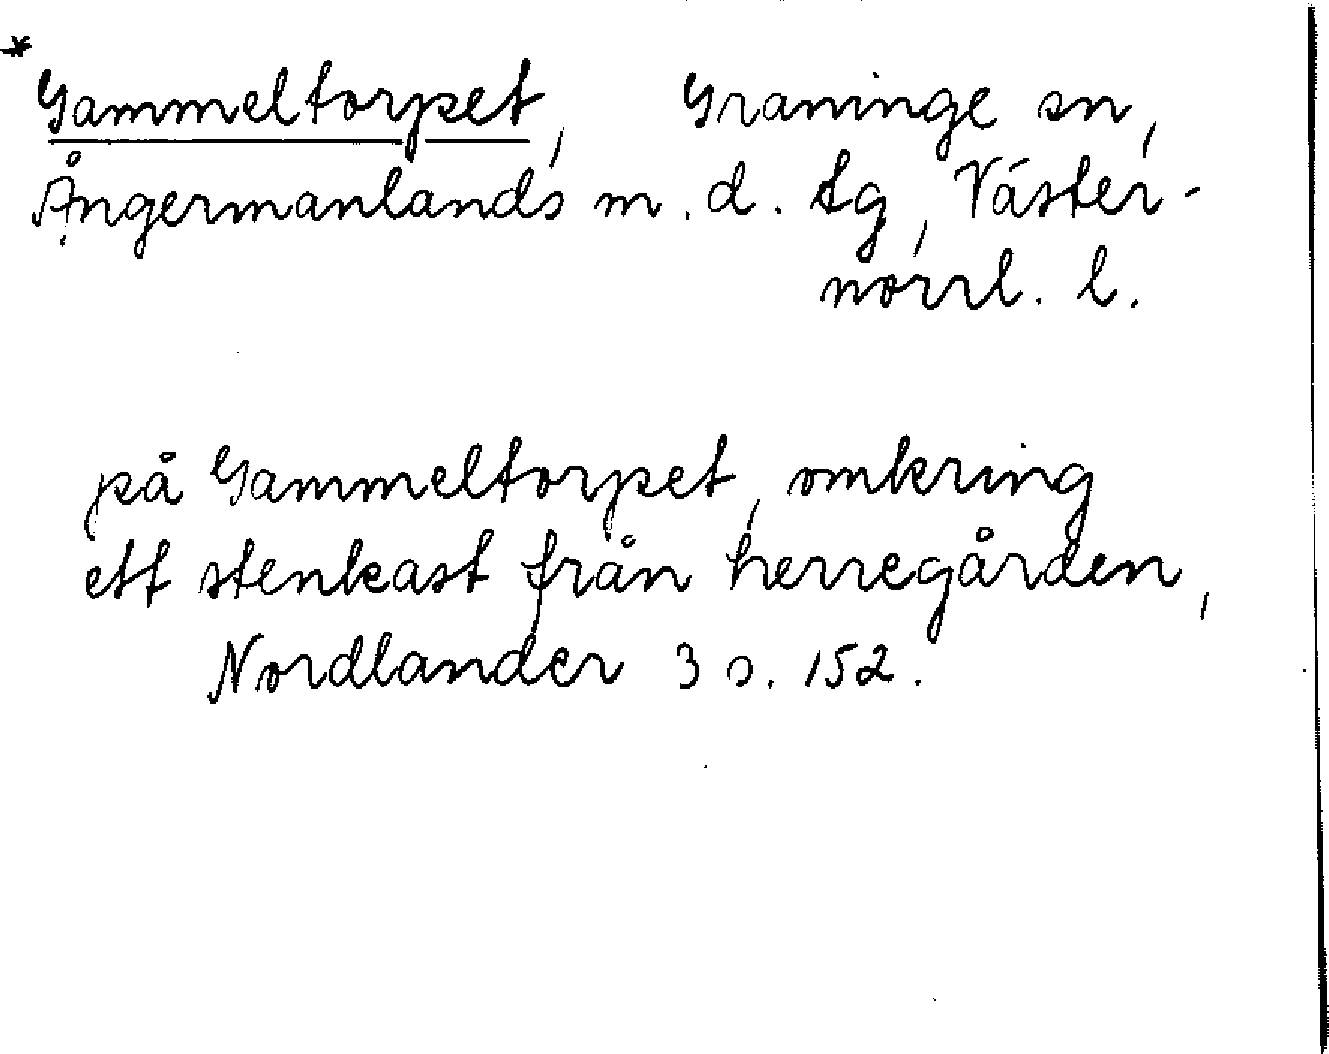 * Gammeltorpet, Graninge sn,
Ångermanlands m. d. tg, Väster-
norrl. l.
på Gammeltorpet, omkring
ett stenkast från herregården,
Nordlander 3 s. 152.